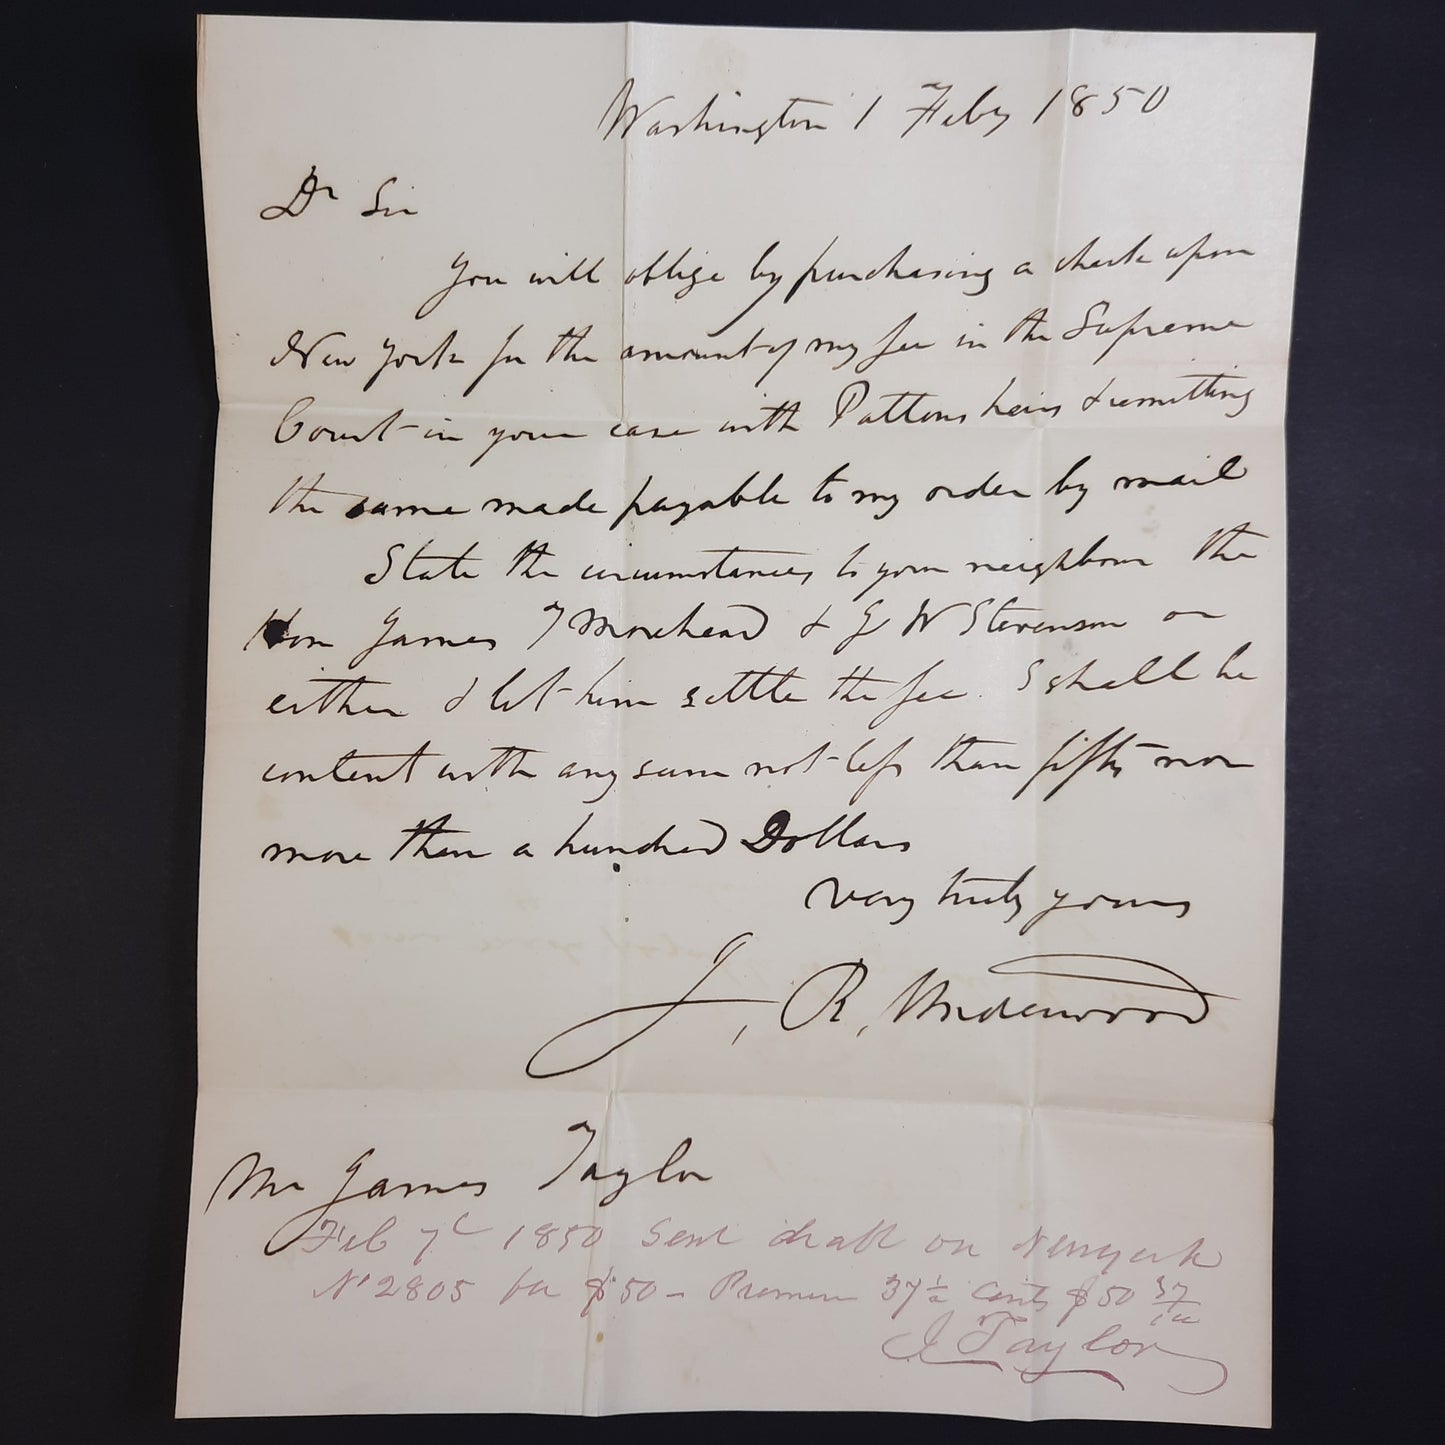 Washington 1 Feby 1850
Dr Sir
You will oblige by purchasing a check upon
New York for the amount of my fee in the Supreme
Court in your case with Pattons heirs & remitting
the same made payable to my order by mail
State the circumstances to your neighbour the
Hon James T Morehead & J W Stevenson or
either & let him settle the fee. I shall be
content with any sum not less than fifty nor
more than a hundred Dollars
very truly yours
J. R. Underwood
Mr James Taylor
Feb 7th 1850 Sent draft on Newyork
No 2805 for $50 - Premium 37 1/2 cents $50 37/100
J Taylor